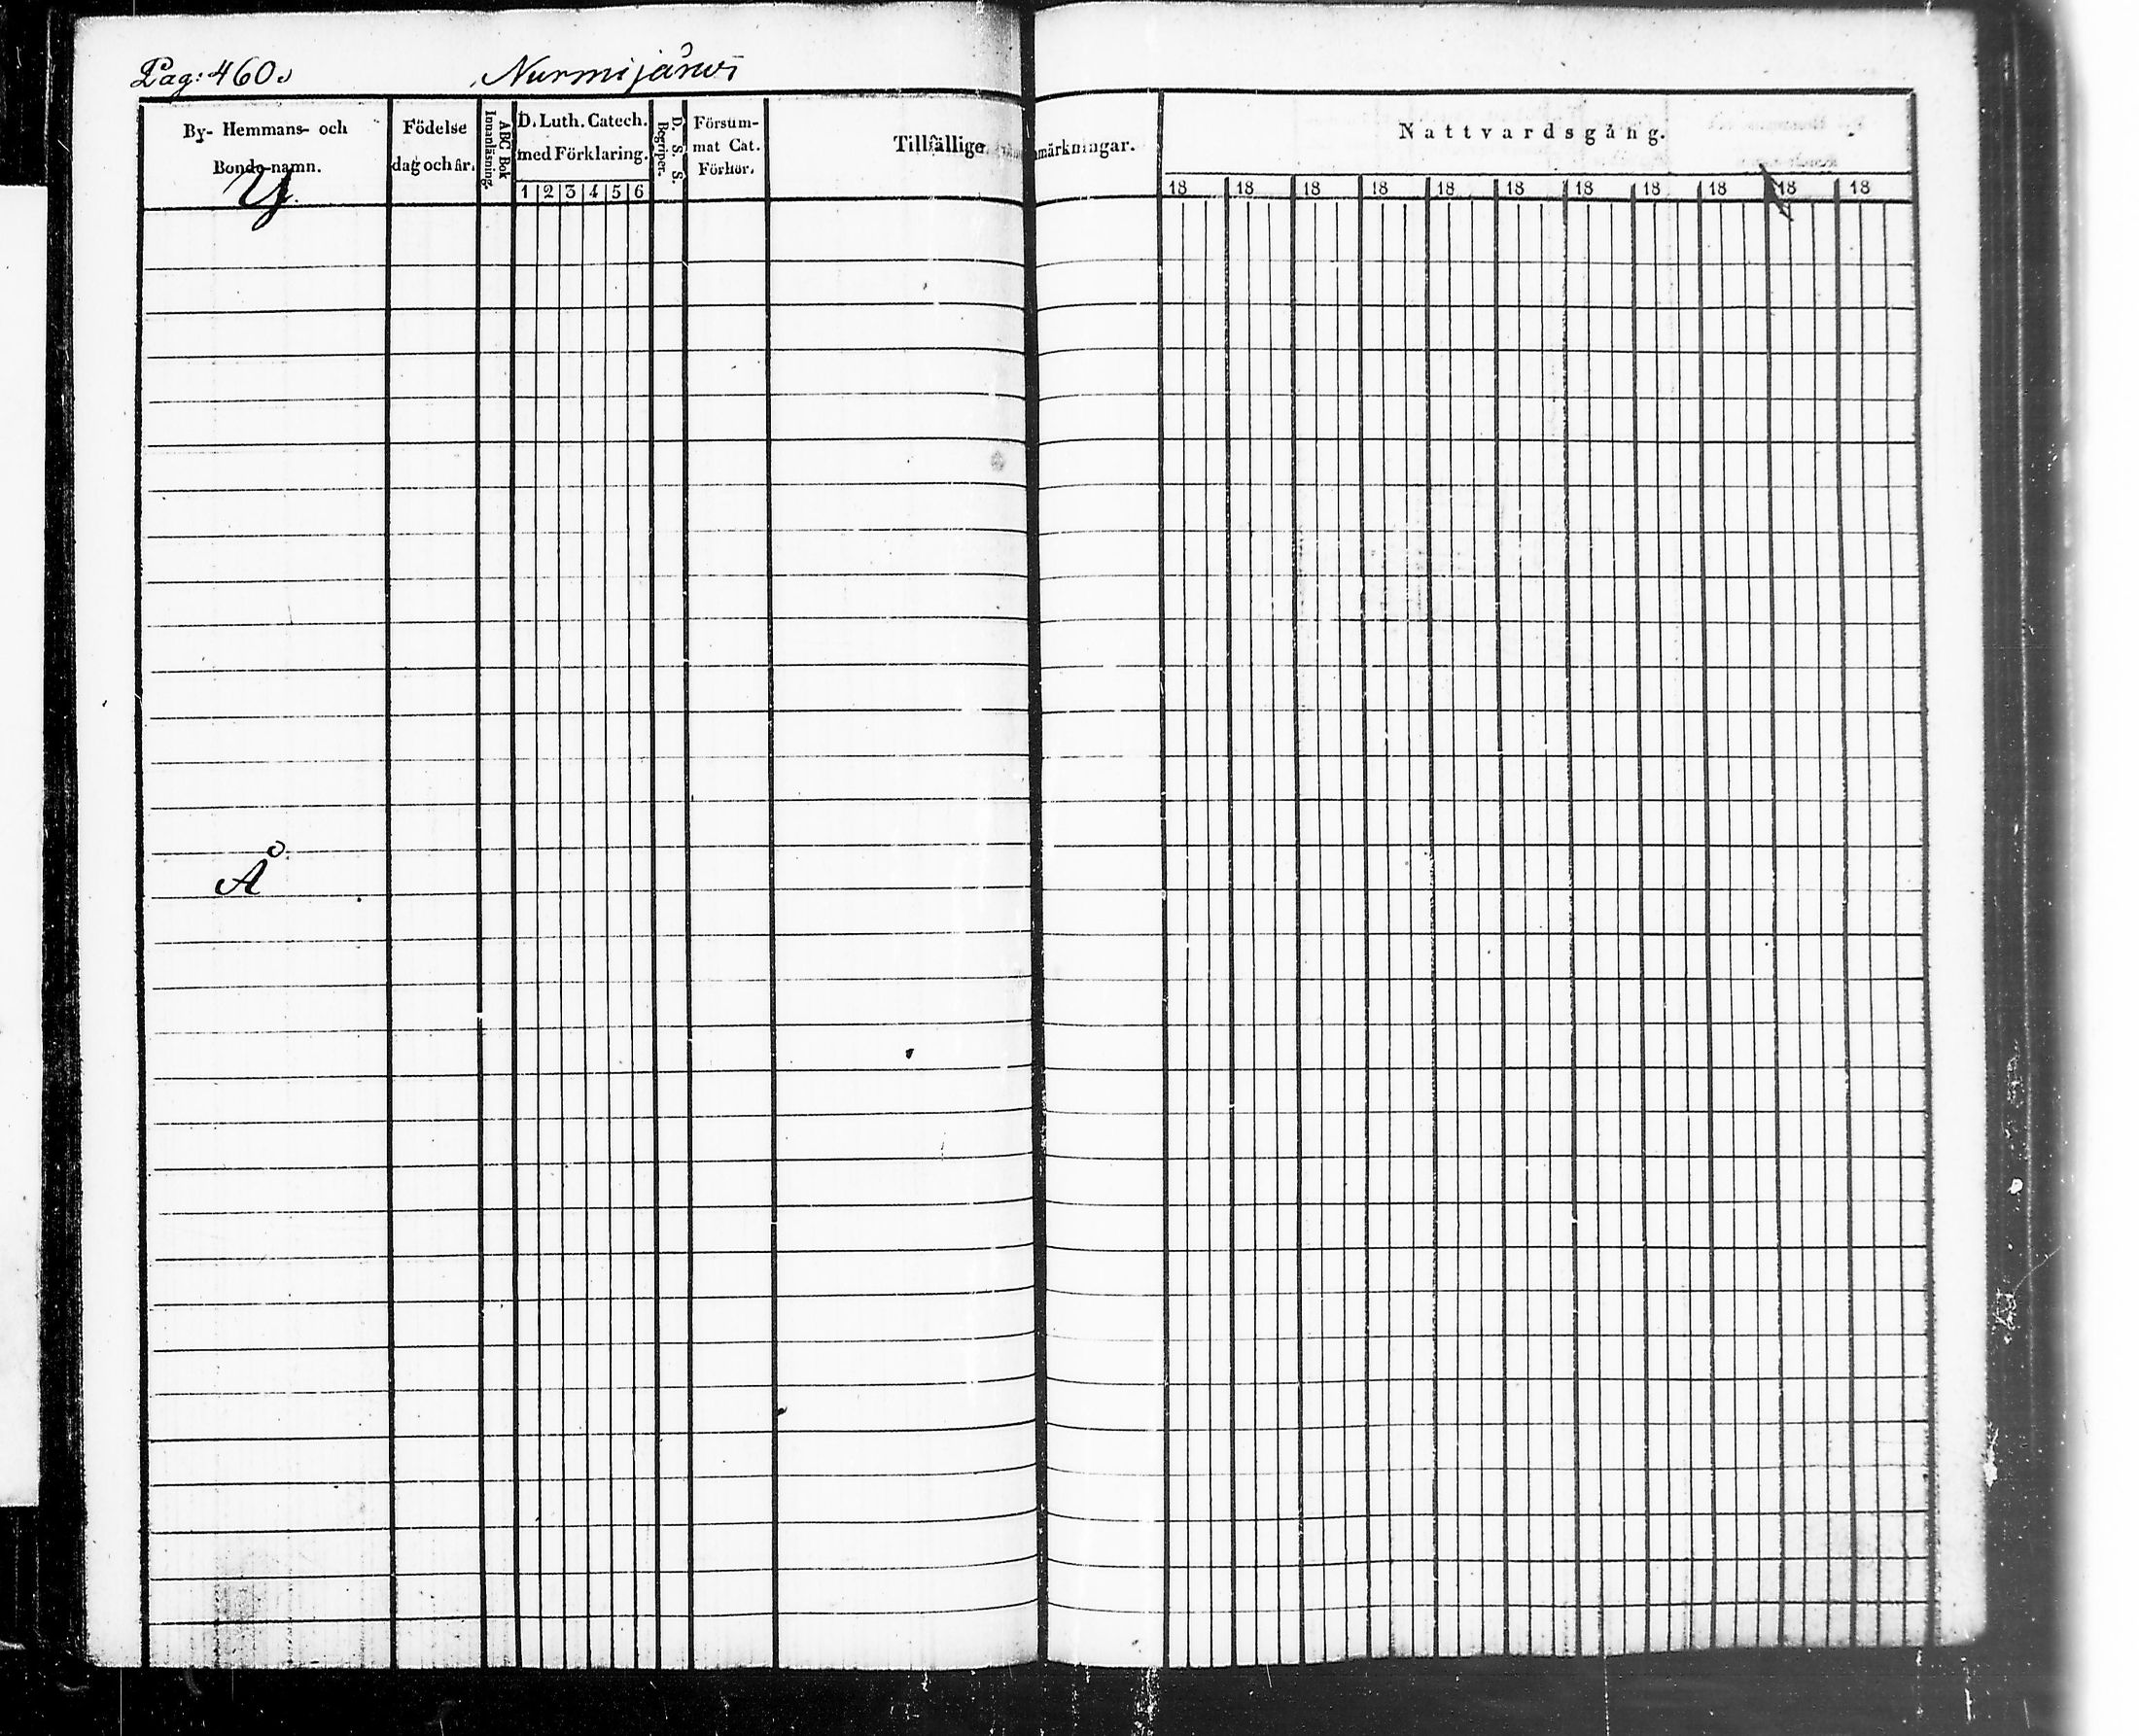 Pag: 460.
Nurmijärvi
By- Hemmans- och
Bonde-namn.
Födelse
dag och år.
ABC Bok
Innanläsning.
D. Luth. Catech.
med Förklaring.
1 2 3 4 5 6
D. S. S.
Begriper.
Försum-
mat Cat.
Förhör.
Tillfällige
nmärkningar.
Nattvardsgång.
18 18 18 18 18 18 18 18 18 18 18
Y.
Å